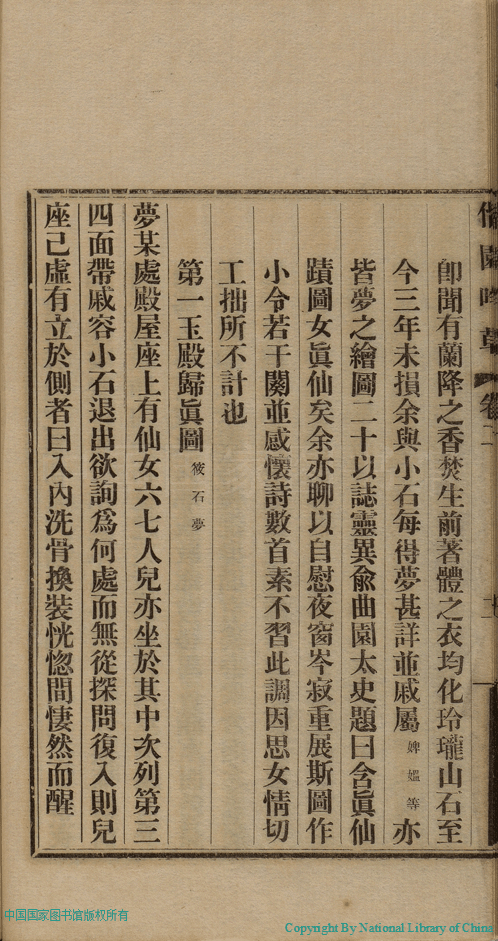 卷二
卽聞有蘭降之香焚生前著體之衣均化玲瓏山石至
今三年未損余與小石每得夢甚詳並戚屬婢嫗等亦
皆夢之繪圖二十以誌靈異兪曲園太史題曰含眞仙
蹟圖女眞仙矣余亦聊以自慰夜窗岑寂重展斯圖作
小令若干闋並感懷詩數首素不習此調因思女情切
工拙所不計也
第一玉殿歸眞圖筱石夢
夢某處殿屋座上有仙女六七人兒亦坐於其中次列第三
四面帶戚容小石退出欲詢爲何處而無從探問復入則兒
座已虛有立於側者曰入內洗骨換裝恍惚間悽然而醒
中国国家图书馆版权所有
Copyright By National Library of China